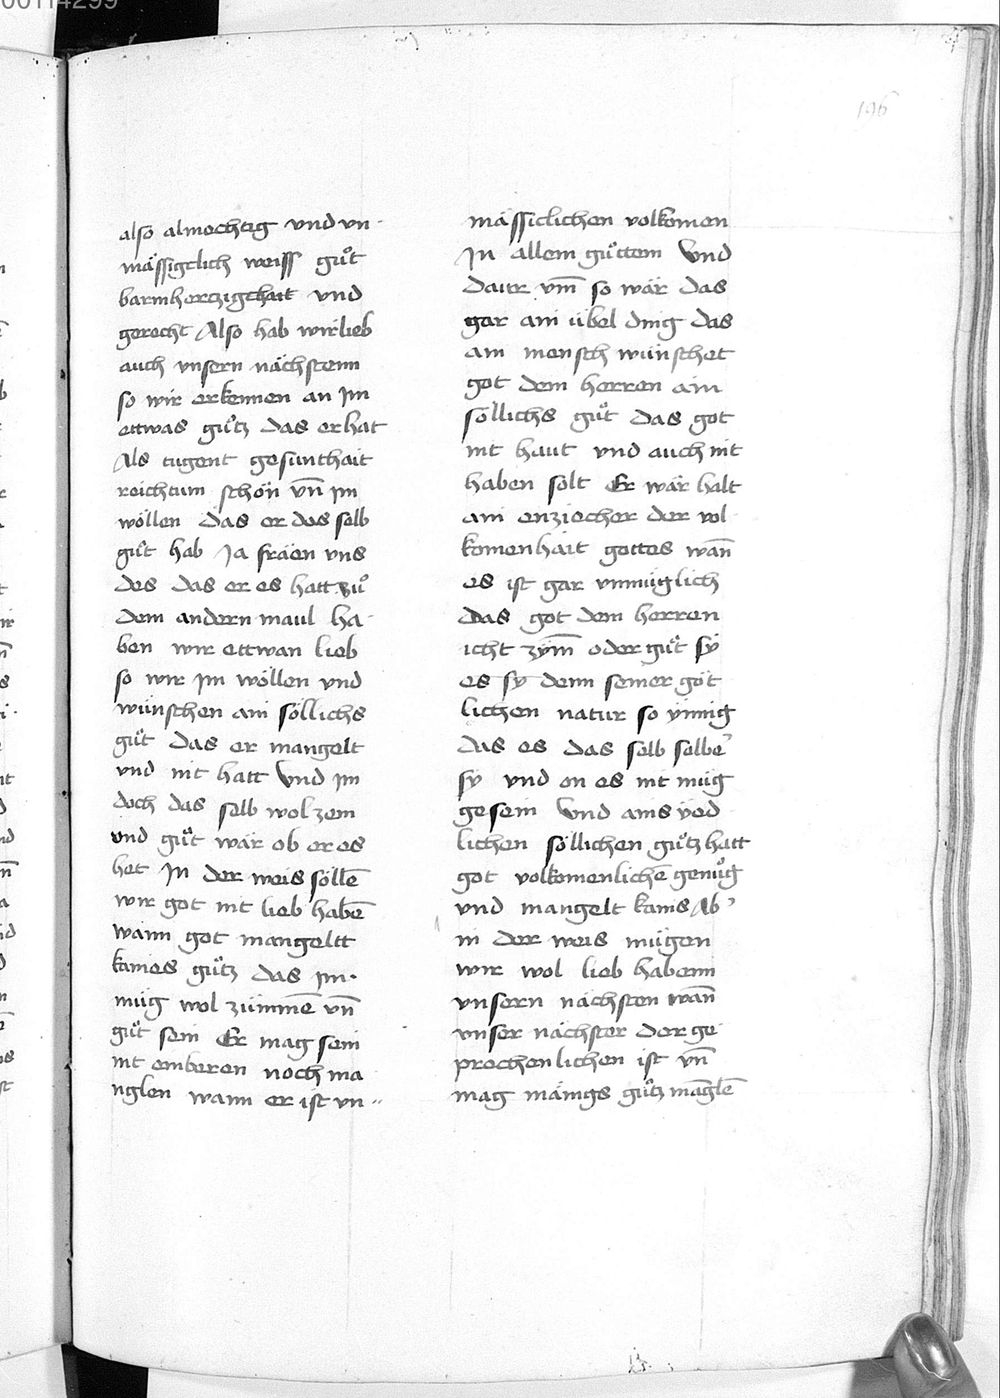 00114299
196
also almechtig vnd vn-
mässigclich weiss guͦt
barmherczigchait vnd
gerecht Also hab wir lieb
auch vnsern nächstenn
so wir erkennen an Im
ettwas guͦtz das er hat
Als tugent gesunthait
reichtum schön vn̄ Im
wöllen das er das selb
guͦt hab Ja fräen vns
des das er es hatt zuͦ
dem andern maul ha-
ben wir ettwan lieb
so wir Im wöllen vnd
wünschen ain söllichs
guͦt das er mangelt
vnd nit hatt Vnd Im
doch das selb wol zem
vnd guͦt wär ob er es
het In der weis söllē
wir got nit lieb habē
wann got mangeltt
kaines guͦtz das Im
müg wol zümmē vn̄
guͦt sein Er mag sein
nit emberen noch ma
nglen wann er ist vn-
mässiclichen volkomen
In allem guͦttem Vnd
darr vm̄ so wär das
gar ain übel ding das
ain mensch wünschet
got dem herren ain
söllichs guͦt das got
nit haut vnd auch nit
haben solt Er wär halt
ain enziecher der vol
komenhait gottes wan̄
es ist gar vnmüglich
das got dem herren
icht zÿm̄ oder guͦt sÿ
es sy denn seiner göt
lichen natur so ÿinnig
das es das selb selber
sy vnd on es nit müg
gesein Vnd ains ÿed
lichen söllichen guͦtz hatt
got volkomenlichē genuͦg
vnd mangelt kains Ab'
in der weis mügen
wir wol lieb habenn
vnsern nächsten wan̄
vnser nächster der ge
prechenlichen ist vn̄
mag mänigs guͦtz māglē